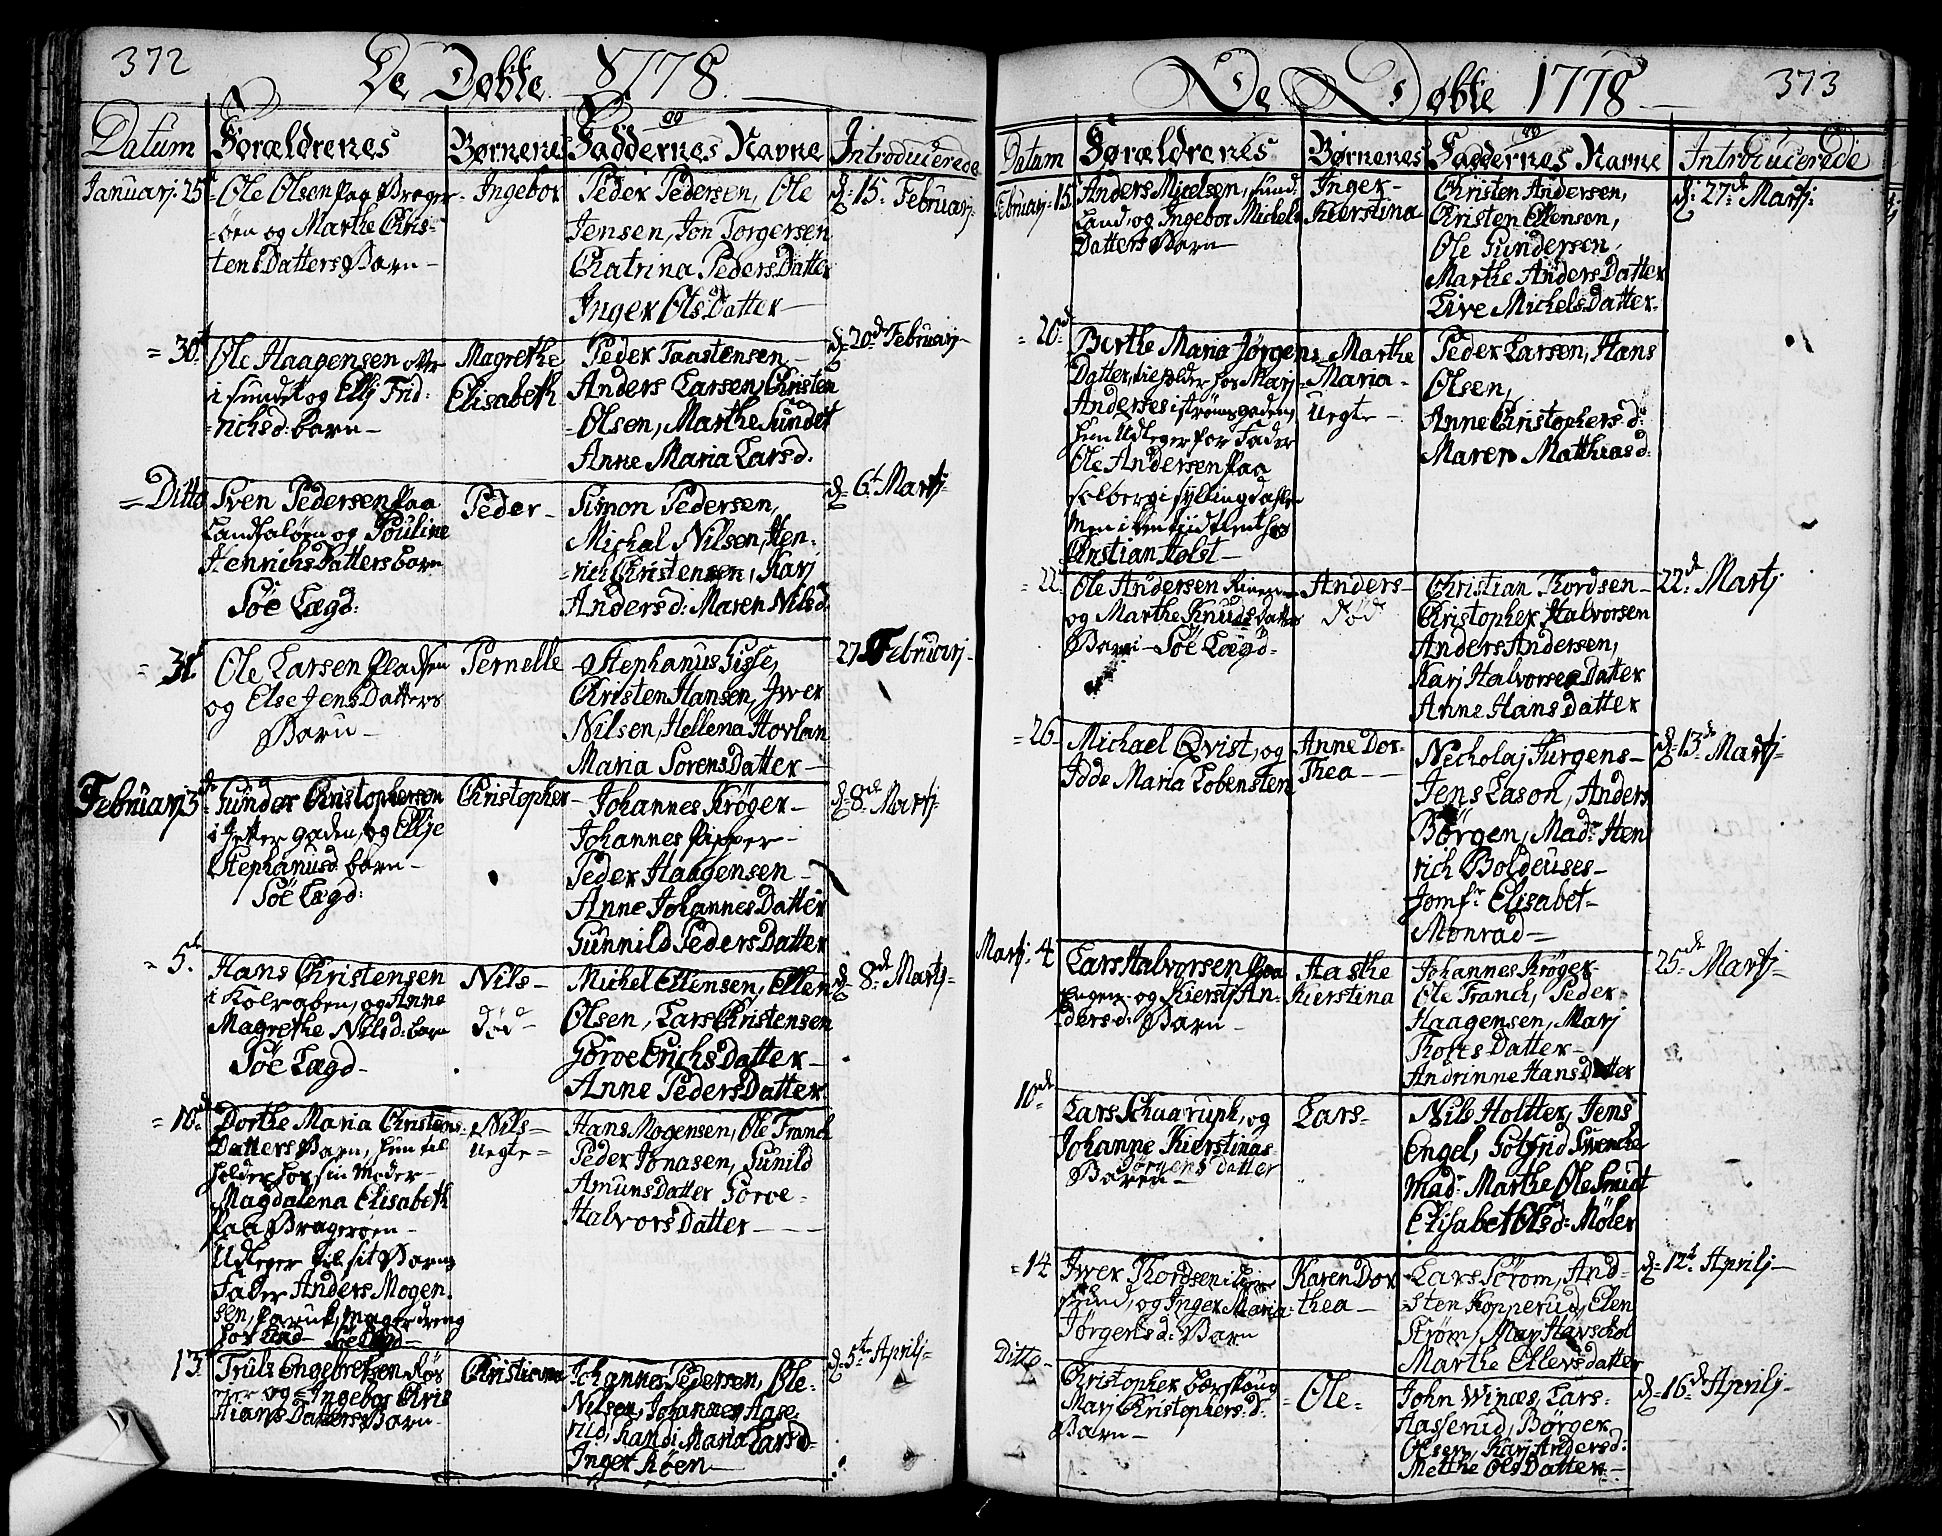 372
De Døbte 1778.
Datum
Forældrenes
Børnenes
og
Faddernes Navne
Introducerede
Januarj: 25
Ole Olsen paa Brager-
øen og Marthe Chris-
tensDatters Barn
Ingebor
Peder Pedersen, Ole
Jensen, Jon Torgersen
Chatrina PedersDatter
Inger OlsDatter
d: 15 Februarj
= 30t
Ole Haagensen
i sundet og Ellj Frid-
richsd: barn
Magrethe
Elisabeth
Peder Taastensen
Anders Larsen, Christen
Olsen, Marthe Sundet
Anne Maria Larsd.
d: 20de Februarj
= Ditto
Sven Pedersen paa
Landfaløen og Pouline
HenrichsDatters barn
Söe Lægd:
Peder
Simon Pedersen,
Michal Nilsen, Hen-
rich Christensen, Karj
Andersd: Maren Nilsd
d: 6t Martj
= 31t
Ole Larsen Pladsen
og Else JensDatters
Barn
Pernelle
Stephanus Gisse,
Christen Hansen, Iwer
Nilsen, Hellena Hovlan
Maria SorensDatter
27de Februarj
Februarj 3de
Gunder Christophersen
i gaden, og Ellje
Stephanusd. barn
Söe Lægd:
Christopher
Johannes Krøger
Johannes Pipper
Peder Haagensen
Anne JohannesDatter
Gunnild PedersDatter
d: 8de Martj
= 5.
Hans Christensen
i Kolvaben, og Anne
Magrethe Nilsd: barn
Söe Lægd
Nils
død
Michel Ellensen, Ellen
Olsen, Lars Christensen
Goroe ErichsDatter
Anne PedersDatter
d: 8de Martj
= 10de
Dorthe Maria Christens-
Datters Barn, hun til
holder hos sin Moder
Magdalena Elisabeth
paa Bragerøen
Udleger til sit Barns
Fader Anders Mogen
sen,
Nils
Uegte
Hans Mogensen, Ole Franck
Peder Jonasen, Gunild
AmunsDatter Goroe
HalvorsDatter
13
Truls Engebretsen
og Ingebor Chris
tiansDatters Barn
Christianna
Johannes Pedersen, Ole
Nilsen, Johannes Hase
rud, Maria Larsd
Inger höen
d: 5t Aprilj
373
De Døbte 1778
Datum
Forældrenes
Børnenes
og
Faddernes Navne
Introducerede
Februarj 15
Anders Micelsen, sund
Land og Ingebor Michels
Datters Barn
Inger
Kierstina
Christen Andersen,
Christen Ellensen,
Ole Gundersen
Marthe AndersDatter
Live MichelsDatter
d: 27de Martj:
= 20de
Berthe Maria Jørgens
Datter, tilholder hos Marj
Anderses i strømsgaden,
hun Udleger for Fader
Ole Andersen paa
Solberg i
Men
Christian Holst
Marthe
Maria
Uegte
Peder Larsen, Hans
Olsen,
Anne Christophers d:
Maren Matthiasd:
= 22
Ole Andersen
og Marthe KnudsDatter
Barn Söe Lægd
Anders
død
Christian Thordsen
Christopher Halvorsen
Anders Andersen,
Karj HalvorsenDatter
Anne Hansdatter
22de Martj
= 26
Michael Qvist, og
Idde Maria Lobensten
Anne Dor-
Thea
Necholaj Jurgens
Jens Lason, Anders
Børgen, Madr. Hen
rich Boldeuses
Jomfr. Elisabet
Monrad
d: 13de Martj
Martj: 4
Lars Halvorsen paa
Engene og Kierstj An-
dersd: Barn
Aasthe
Kierstina
Johannes Krøger
Ole Franch, Peder
Haagensen, Marj
TholfsDatter
Andrinne HansDatter
25de Martj
10de
Lars Schaarupk, og
Johanne Kierstinas
JørgensDatter
Barn
Lars
Nils Holtter, Jens
Engel, Gotfrid Svencke
Mad. Marthe Ole Smidt
Elisabet Olsd: Møler
= 14
Iwer Thordsen i
sund, og Inger Maria
Jørgensd: Barn
Karen Dor
thea
Lars Sörom, And-
sten Kopperud, Elen
Strøm, Marj
Marthe Ellersdatter
d: 12t Aprilj
Ditto
Christopher Borskoug
Marj Christophers: d:
Barn
Ole
John Winæs, Lars
Hasserud, Børger
Olsen, Karj Andersd:
Metthe OlsDatter
d: 16de Aprilj